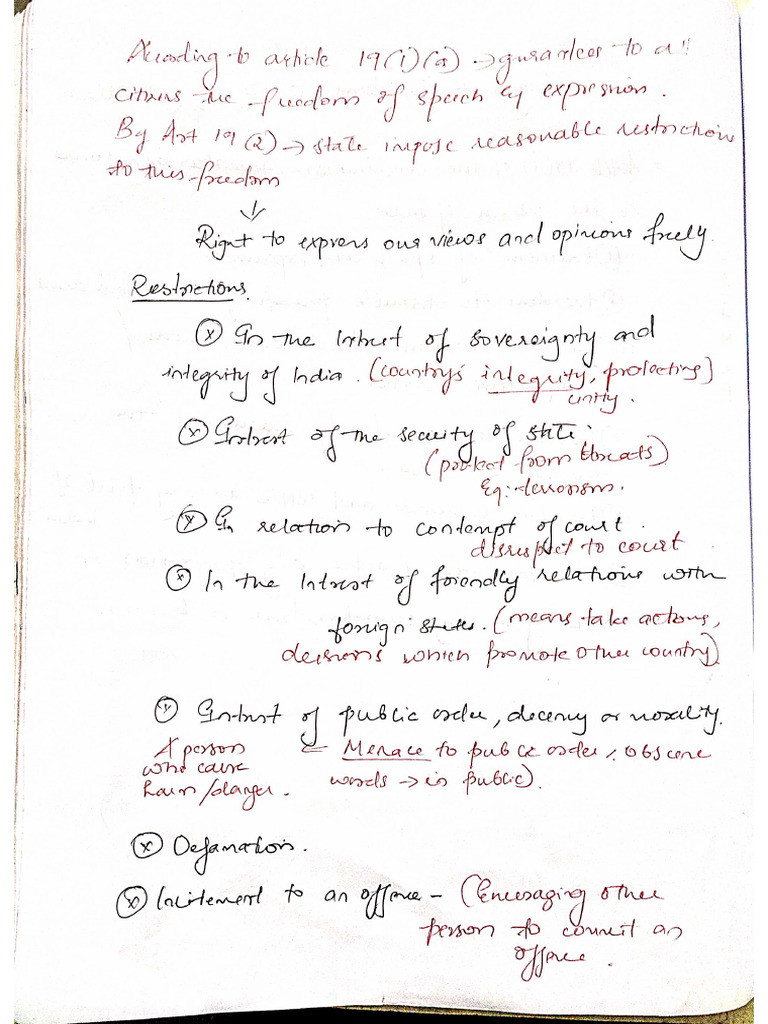 According to article 19(1)(a) → gurantees to all
citizens the freedom of speech & expression.
By Art 19 (2) → state impose reasonable restriction
to this freedom
↓
Right to express our views and opinions freely.
Restrictions.
ⓧ In the Intrest of sovereignty and
integrity of India. (country's integrity, protecting)
unity.
ⓧ Intrest of the security of state.
(protect from threats)
Eg:- terrorism.
ⓧ In relation to contempt of court.
disrespect to court
ⓧ In the Intrest of friendly relations with
foreign states. (means take actions,
decisions which promote other country)
ⓧ Intrest of public order, decency or morality.
A person ← Menace to public order, obscene
who cause words → in public).
harm/danger.
ⓧ Defamation.
ⓧ Incitement to an offence - (Encouraging other
person to commit an
offence.